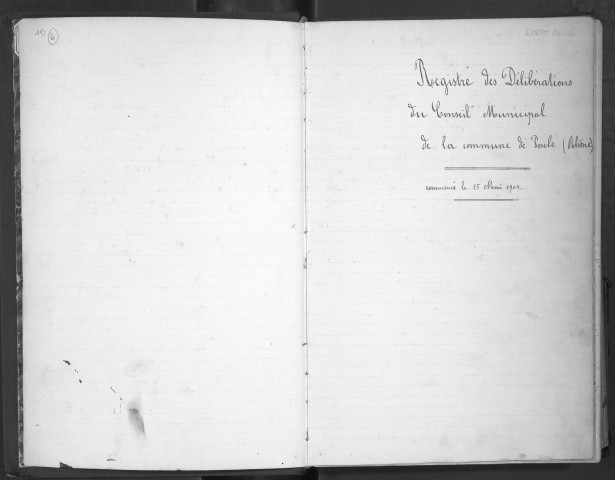 15) 6
Registre des Délibérations
du Conseil Municipal
de la commune de Poule (Rhône)
commencé le 15 Mai 1904.